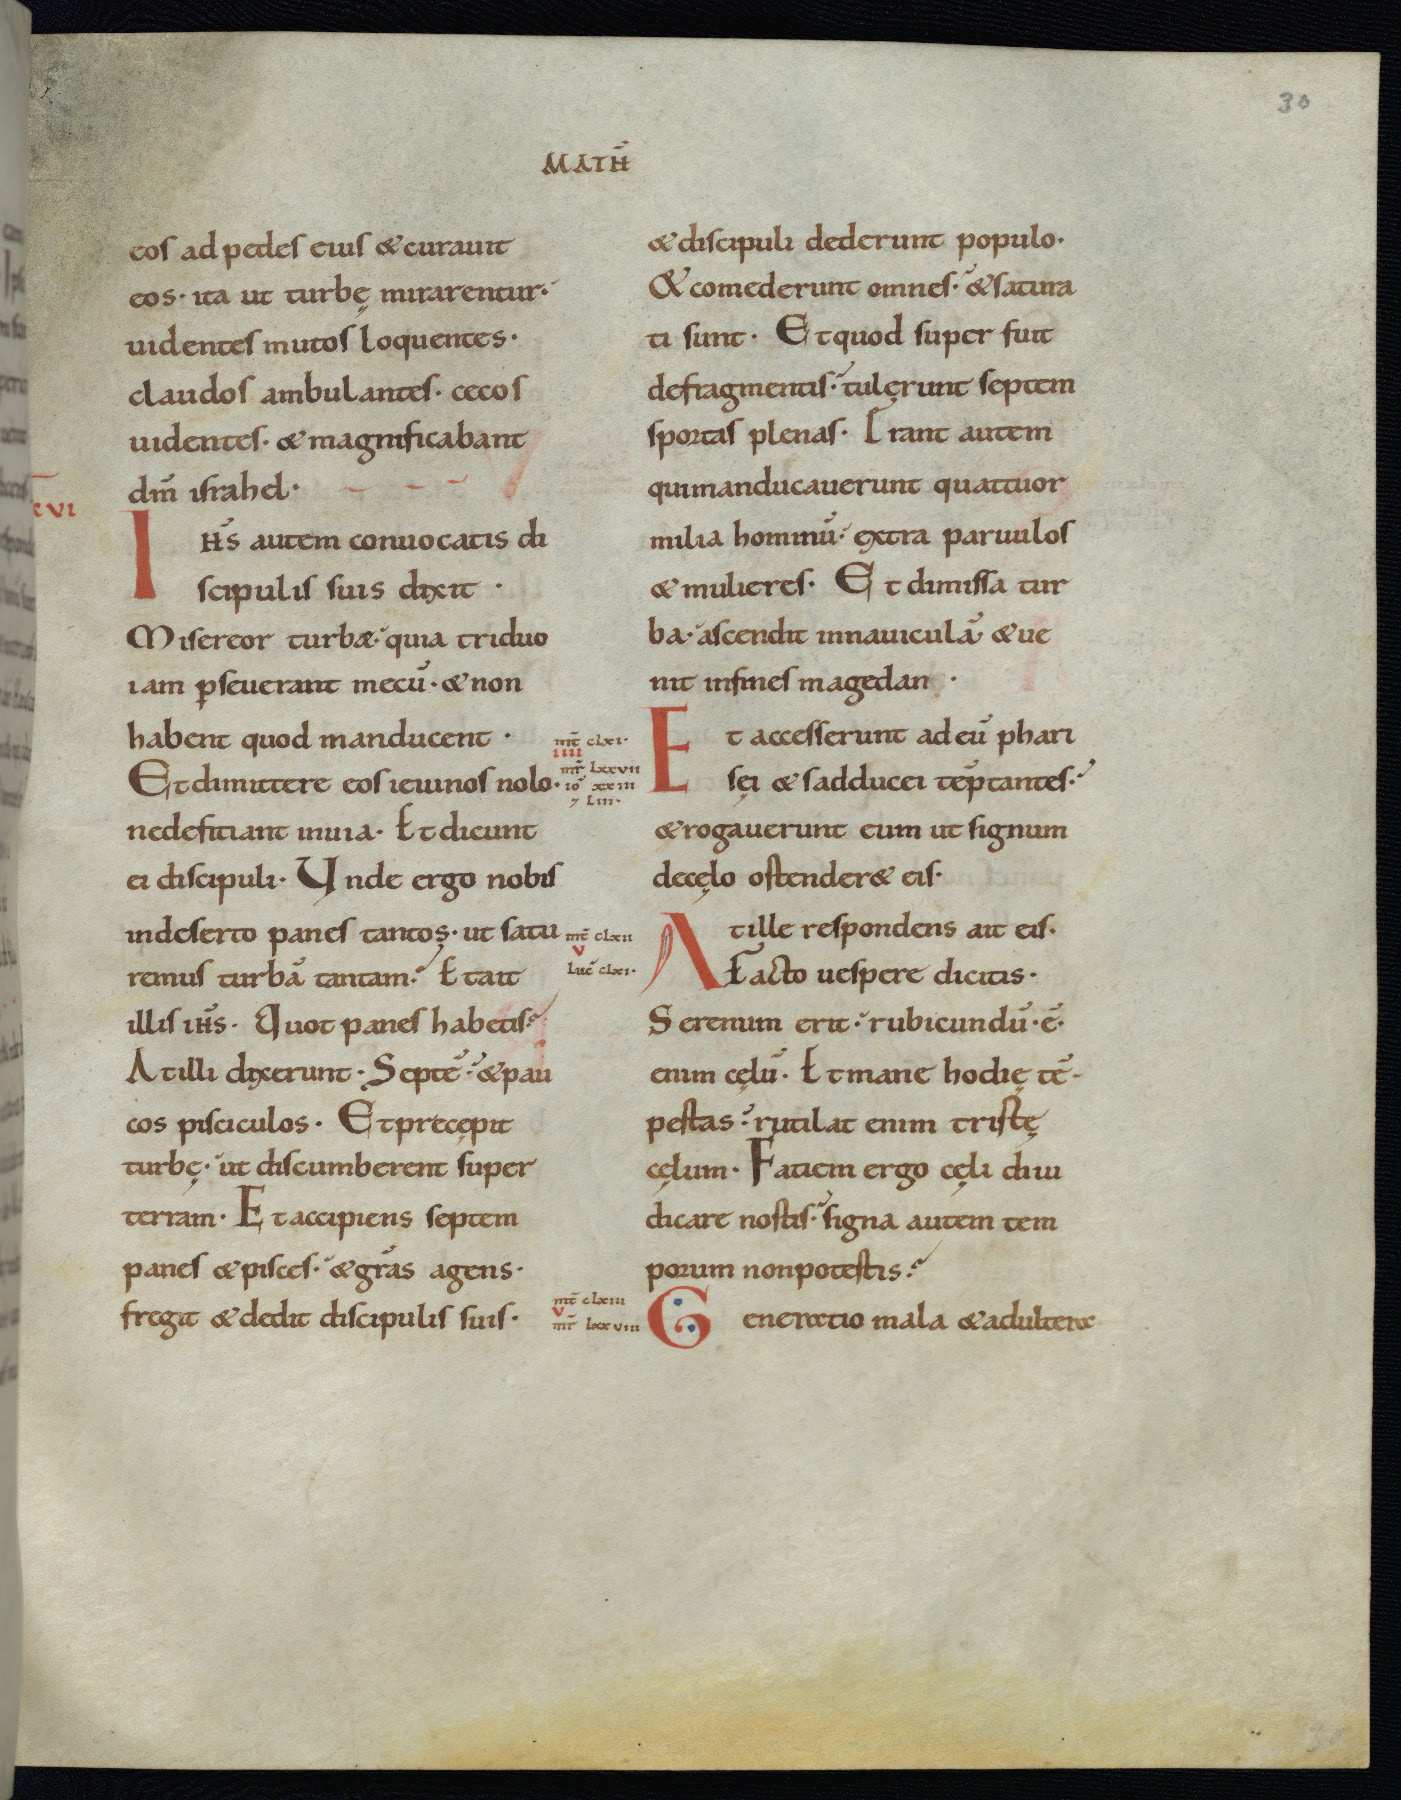 30
MATH̄
eos ad pedes eius & curauit
eos· ita ut turbę mirarentur·
uidentes mutos loquentes·
claudos ambulantes· cecos
uidentes· & magnificabant
dm̄ israhel·
xvi
IHS̄ autem conuocatis di
scipulis suis dixit ·
Misereor turbæ· quia triduo
iam ꝑseuerant mecū· & non
habent quod manducent ·
Et dimittere eos ieiunos nolo·
nedefitiant inuia· Et dicunt
ei discipuli· Unde ergo nobis
indeserto panes tantos· ut satu
remus turbā tantam? Et ait
illis ihs̄· Quot panes habetis?
At illi dixerunt· Septē· & pau
cos pisciculos· Et precepit
turbę· ut discumberent super
terram· Et accipiens septem
panes & pisces· & grās agens·
fregit & dedit discipulis suis·
& discipuli dederunt populo·
& comederunt omnes· & satura
ti sunt· Et quod super fuit
defragmentis· tulerunt septem
sportas plenas· Erant autem
quimanducauerunt quattuor
milia hominū· extra paruulos
& mulieres· Et dimissa tur
ba· ascendit innauiculā & ue
nit infines magedan ·
mt̄ clxi·
IIII
mr̄ lxxvii
io xxiii
7 liii·
Et accesserunt ad eū phari
sęi & sadducei tēptantes·
& rogauerunt eum ut signum
decęlo ostender& eis·
mt̄ clxii
v
luc̄ clxi·
At ille respondens ait eis·
Facto uespere dicitis·
Serenum erit· rubicundū· ē·
enim cęlū· Et mane hodię tē-
pestas· rutilat enim tristę
cęlum· Fatiem ergo cęli diiu
dicare nostis· signa autem tem
porum nonpotestis?
mt̄ clxiii
v
mr̄ lxxviii
Generatio mala & adultera